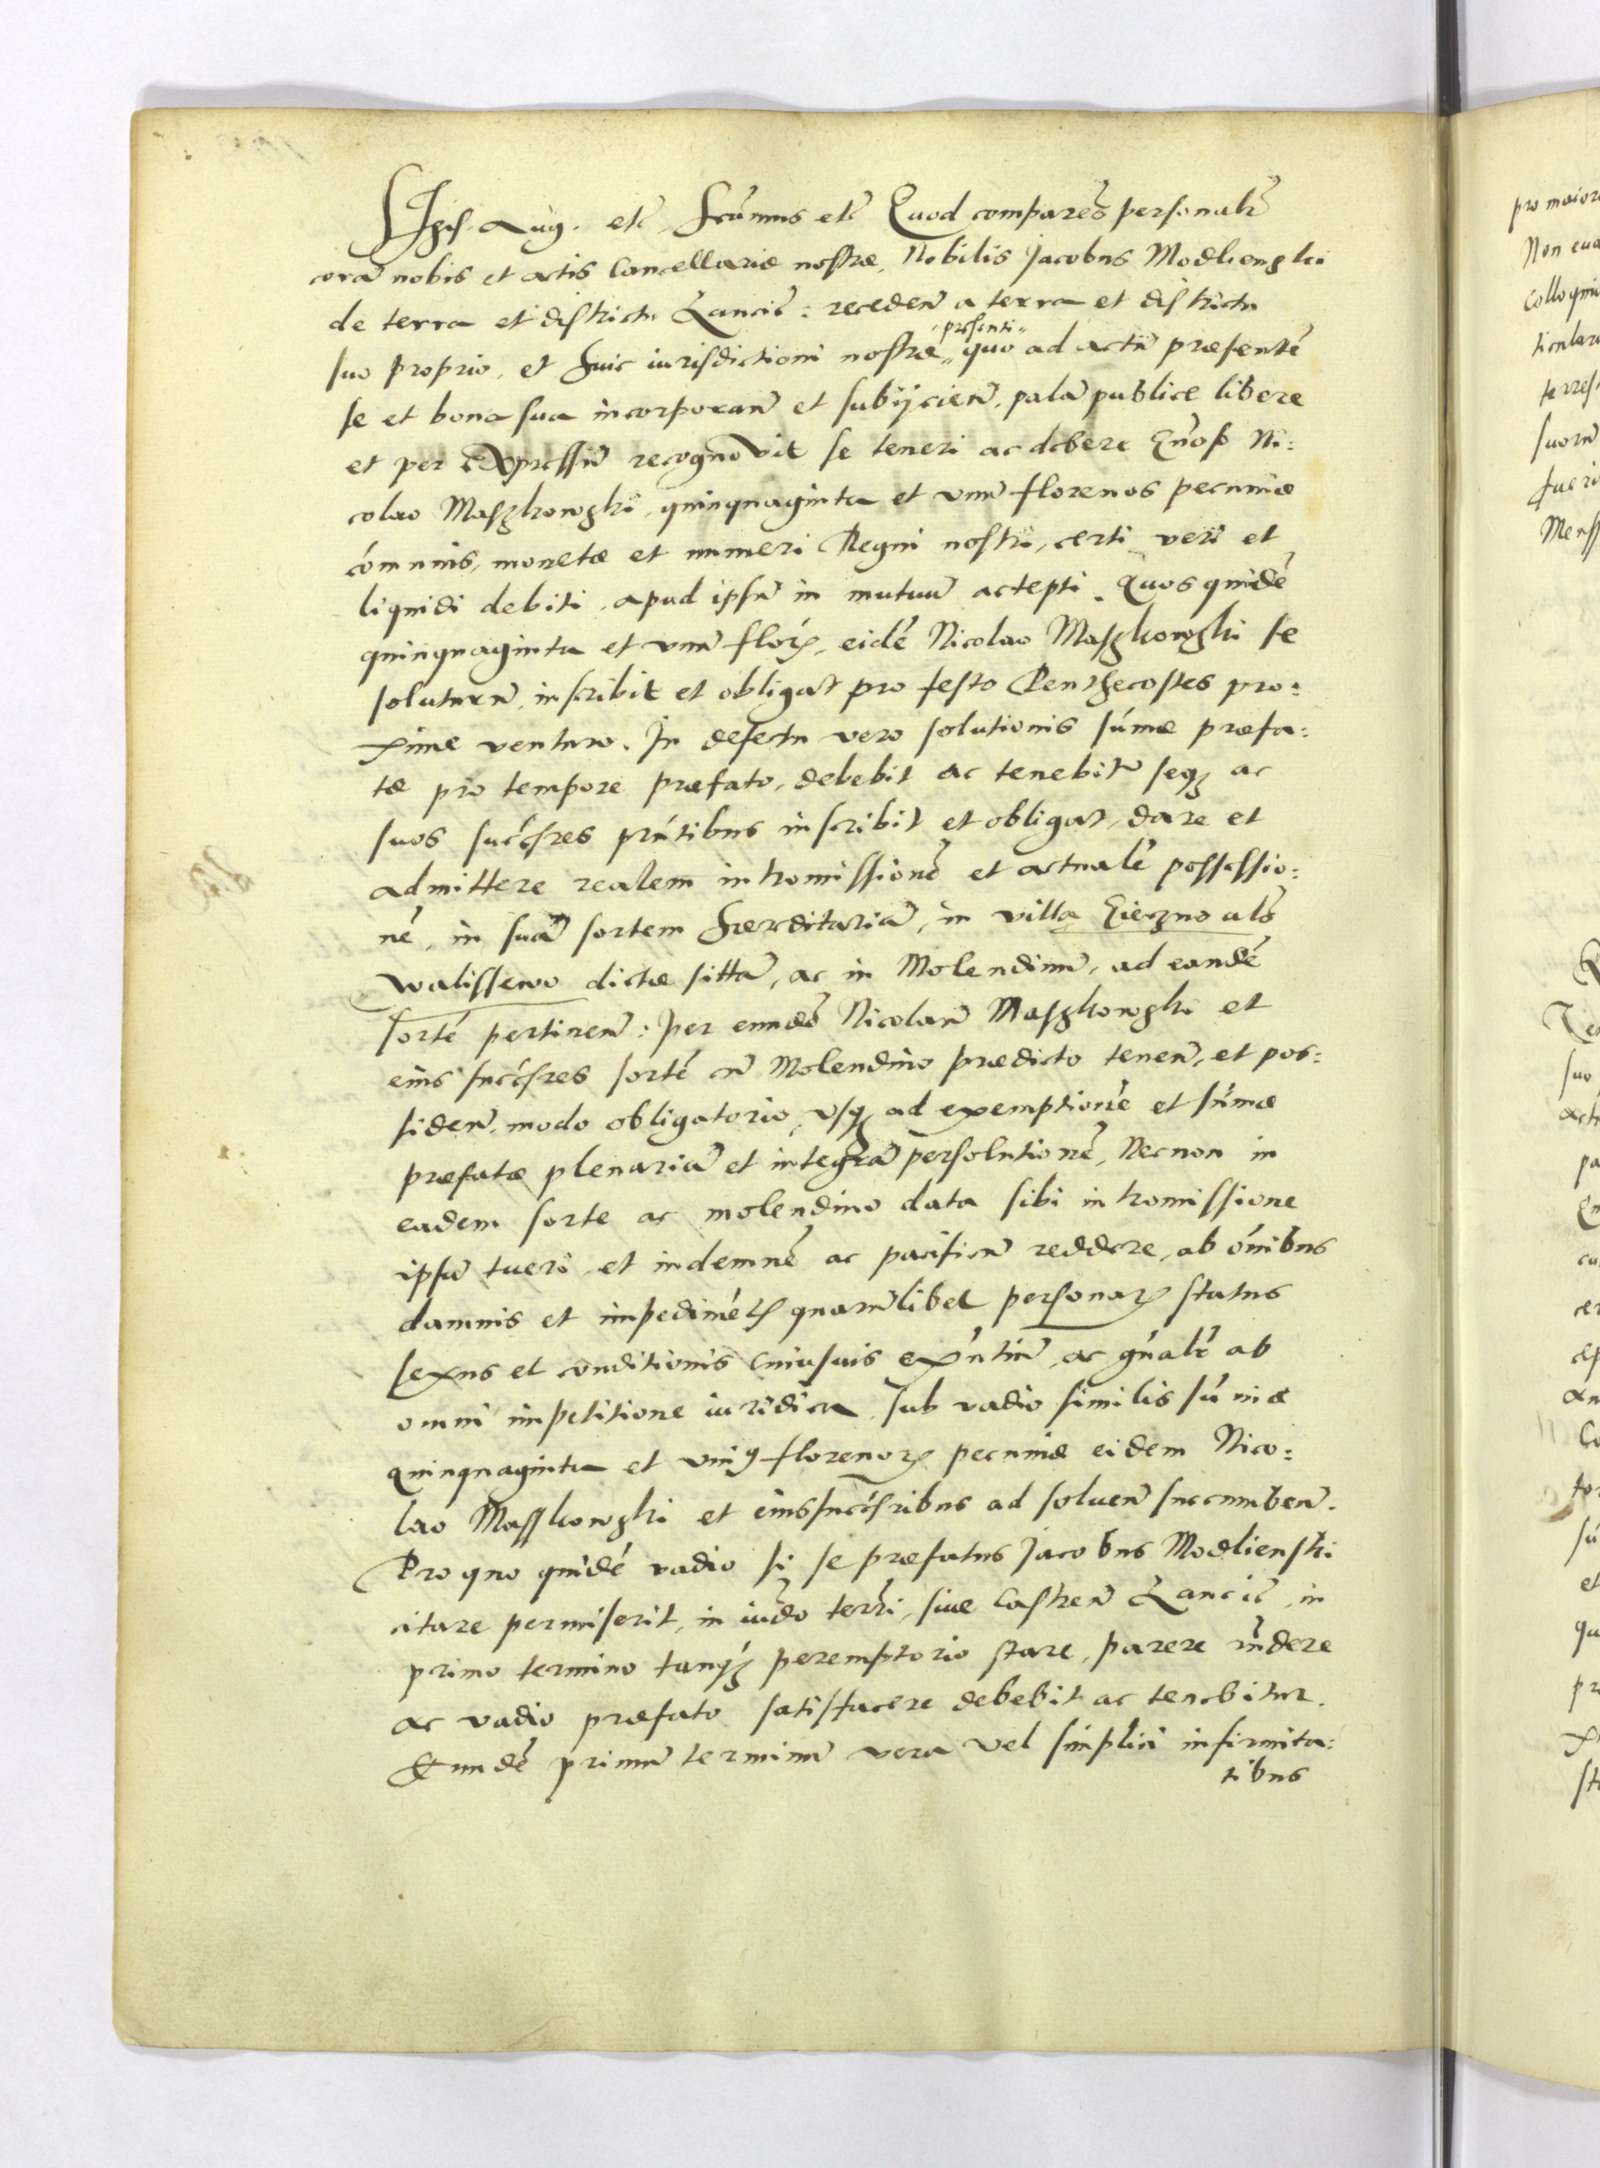 Sigis. Aug. etc̃ Scũmus etc̃ Quod comparẽs personalr̃
corã nobis et actis Cancellariæ nostræ, Nobilis Jacobus Modliengski
de terra et districtu Lancic̃: recedeñ a terra et districtu
suo proprio, et huic iurisdictioni nostræ "presenti" quo ad actũ præsentẽ
se et bona sua incorporañ et subÿcieñ, palã publice libere
et per expressũ recognovit se teneri ac debere G̃noso Ni:
colao Maszkowski, quinquaginta et vnũ florenos pecuniæ
cõmunis, monetæ et numeri Regni nostri, certi veri et
liquidi debiti, apud ipsũ in mutuũ accepti. Quos quidẽ
quinquaginta et vnũ floꝝ, eidẽ Nicolao Maszkowski se
soluturũ, inscribit et obligat pro festo Penthecostes pro:
xime venturo. In defectu vero solutionis sũmæ præfa:
tæ pro tempore præfato, debebit ac tenebitr̃ seqꝫ ac
suos succ̃sres pñtibus inscribit et obligat, dare et
admittere realem intromissionẽ et actualẽ possessio:
nẽ, in suã sortem hæreditariã, in villa Gieczno als̃
Walissewo dictæ sittã, ac in Molendinũ, ad eandẽ
sortẽ pertineñ: per eundẽ Nicolaũ Maszkowski et
eius succ̃sres sortẽ cũ Molendino prædicto teneñ, et pos:
sideñ, modo obligatorio, vsqꝫ ad exemptionẽ et sũmæ
præfatæ plenariã et integrã persolutionẽ, Necnon in
eadem sorte ac molendino data sibi intromissione
ipsũ tueri, et indemnẽ ac pacificũ reddere, ab õnibus
damnis et impedimẽtꝭ quarũlibet personaꝝ status
sexus et conditionis cuiusuis exñtiũ, ac gñalr̃ ab
omni impetitione iuridica, sub vadio similis sũmæ
quinquaginta et vniꝰ florenoꝝ pecuniæ eidem Nico:
lao Masskowski et eius succ̃sribus ad solueñ succumbeñ.
Pro quo quidẽ vadio si se præfatus Jacobus Modlienski
citare permiserit, in iudõ terri, siue Castreñ Lancic̃, in
primo termino tanqꝫ peremptorio stare, parere rñdere
ac vadio præfato satisfacere debebit ac tenebitur.
Eundẽ primũ terminũ vera vel simplici infirmita:
tibus